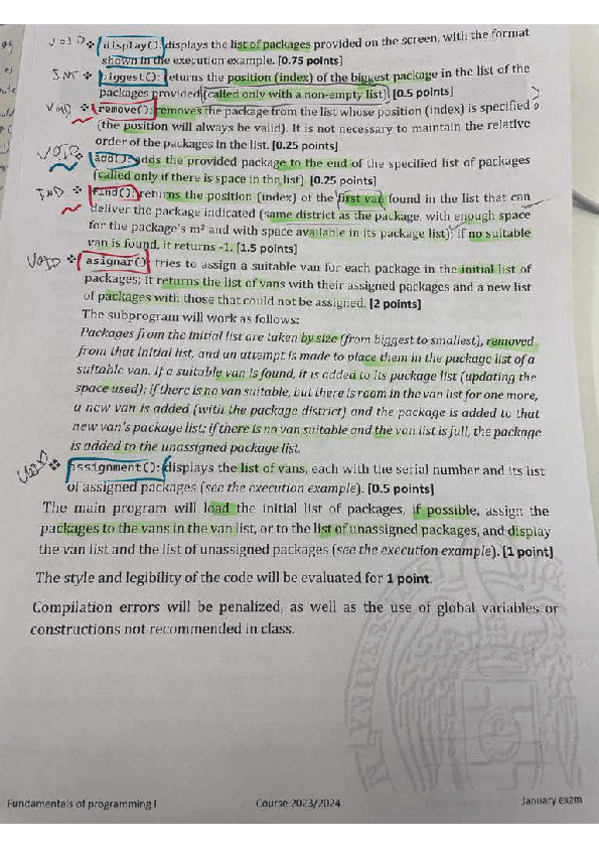 VOID ❖ display(): displays the list of packages provided on the screen, with the format
shown in the execution example. [0.75 points]
INT ❖ biggest(): returns the position (index) of the biggest package in the list of the
packages provided (called only with a non-empty list). [0.5 points]
VOID ❖ remove(): removes the package from the list whose position (index) is specified
(the position will always be valid). It is not necessary to maintain the relative
order of the packages in the list. [0.25 points]
VOID ❖ add(): adds the provided package to the end of the specified list of packages
(called only if there is space in the list). [0.25 points]
IND ❖ find(): returns the position (index) of the first van found in the list that can
deliver the package indicated (same district as the package, with enough space
for the package's m² and with space available in its package list); if no suitable
van is found, it returns -1. [1.5 points]
VOID ❖ asignar(): tries to assign a suitable van for each package in the initial list of
packages; it returns the list of vans with their assigned packages and a new list
of packages with those that could not be assigned. [2 points]
The subprogram will work as follows:
Packages from the initial list are taken by size (from biggest to smallest), removed
from that initial list, and an attempt is made to place them in the package list of a
suitable van. If a suitable van is found, it is added to its package list (updating the
space used); if there is no van suitable, but there is room in the van list for one more,
a new van is added (with the package district) and the package is added to that
new van's package list; if there is no van suitable and the van list is full, the package
is added to the unassigned package list.
VOID ❖ assignment(): displays the list of vans, each with the serial number and its list
of assigned packages (see the execution example). [0.5 points]
The main program will load the initial list of packages, if possible, assign the
packages to the vans in the van list, or to the list of unassigned packages, and display
the van list and the list of unassigned packages (see the execution example). [1 point]
The style and legibility of the code will be evaluated for 1 point.
Compilation errors will be penalized, as well as the use of global variables or
constructions not recommended in class.
Fundamentals of programming I Course 2023/2024 January exam